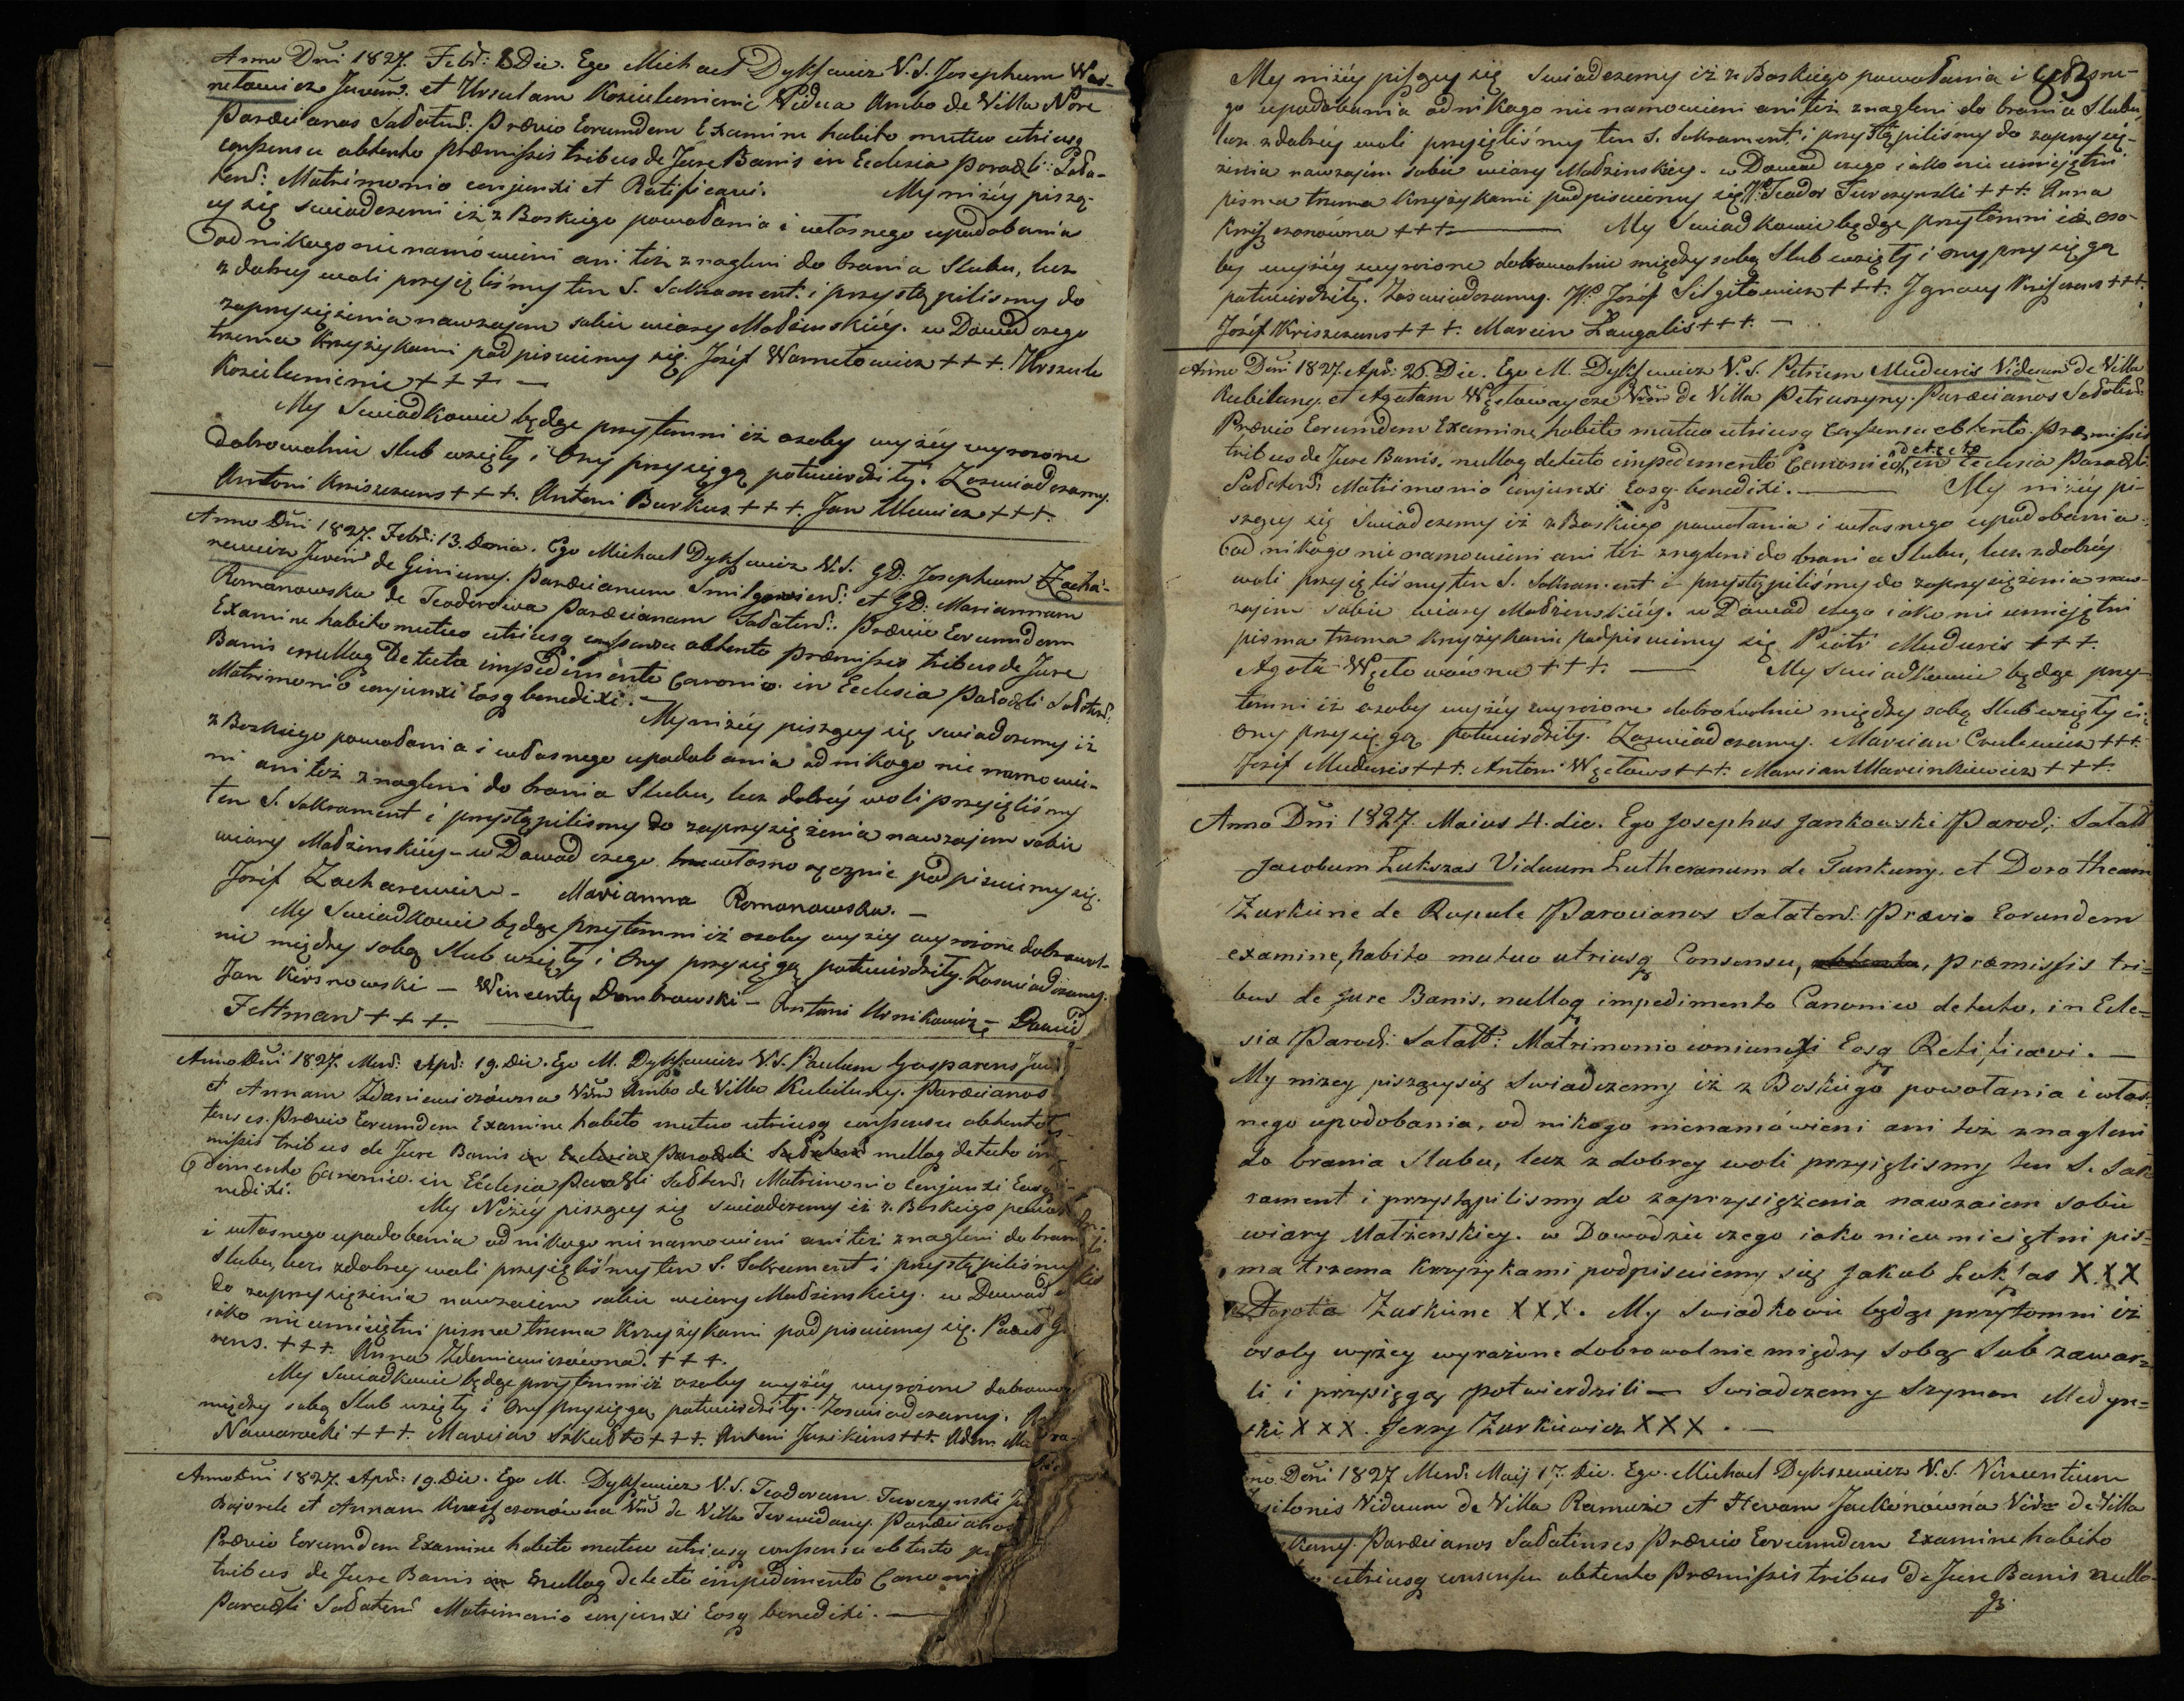 Anno Dni 1827. Febr: 8 Die. Ego Michael Dyksewicz V.S. Josephum War-
netowicz Juven. et Ursulam Kozielunienie Vidua Ambo de Villa Nore
Parœcianos Sałatens: Prævio Eorumdem Examine habito mutuo utriusq
consensu obtento præmissis tribus de Jure Banis in Eclesia Paroch: Sała-
tens: Matrimonio conjunxi et Ratificavi. My niżéy piszą-
cy się swiadczemi iż z Boskiego powołania i własnego upodobania
od nikogo nie namówieni ani też znagleni do brania Slubu, lecz
z dobrey woli przyięliśmy ten S. Sakrament. i przystąpilismy do
zaprzysiężenia nawzajem sobie wiary Małżenskiéy. w Dowod czego
trzema Krzyżykami podpisuiemy się. Józéf Warnetowicz +++. Urszula
Kozielunienie +++ —
My Swiadkowie będąc przytomni iż osoby wyżéy wyrożone
dobrowolnie slub wzięły i Ony przysięgą potwierdziły. Zaswiadczamy.
Antoni Kriszczuns +++. Antoni Burkus +++. Jan Ulewicz +++.
Anno Dni 1827. Febr: 13. Dnia. Ego Michael Dyksewicz V.S. GD: Josephum Zacha-
rewicz Juven de Giniuny. Parœcianum Smilgowiens: et GD: Mariannam
Romanowska de Teodorowa Parœcianam Sałatens:. Prævio Eorumdem
Examine habito mutuo utriusq consensu obtento præmissis tribus de Jure
Banis nulloq Detecto impedimento Canonico. in Eclesia Parochli Sałatens:
Matrimonio conjunxi Eosq benedixi. —
My niżéy piszący się swiadczemy iż
z Boskiego powołania i własnego upodobania od nikogo nie namowie-
ni ani też znagleni do brania Slubu, lecz dobréy woli przyięliśmy
ten S. Sakrament i przystąpilismy do zaprzysiężenia nawzajem sobie
wiary Małżenskiéy – w Dowod czego własno ręcznie podpisuiemy się.
Jozéf Zacharewicz – Marianna Romanowska. –
My Swiadkowie będąc przytomni iż osoby wyżéy wyrożone dobrowol-
nie między sobą Slub wzięły i Ony przysięgą potwierdziły. Zaswiadczamy.
Jan Kirsnowski – Wincenty Dombrowski – Antoni Urnikowicz – Dawid
Feltman +++. —
Anno Dni 1827. Mens: Apr: 19. Die. Ego M. Dyksewicz V.S. Paulum Gasparens Juv
et Annam Zdaniewiczówna Vir Ambo de Villa Kubiluny. Parœcianos
tenses. Prævio Eorumdem Examine habito mutuo utriusq consensu obtento
missis tribus de Jure Banis in Eclesia Parochli Sałatens nulloq detecto im
pedimento Canonico. in Eclesia Parochli Sałtens: Matrimonio Conjunxi Eosq
nedixi.
My Niżéy piszący się swiadczemy iż z Boskiego powo
i własnego upodobania od nikogo nie namowieni ani też znagleni do bran
Slubu, lecz z dobrey woli przyięliśmy ten S. Sakrament i przystąpiliśmy
do zaprzysiężenia nawzaiem sobie wiary Małżenskiey. w Dowod
iako nieumieiętni pisma trzema Krzyżykami podpisuiemy się. Paweł G
rens. +++. Anna Zdaniewiczówna. +++.
My Swiadkowie będąc przytomni iż osoby wyżéy wyrożone dobrowo
między sobą Slub wzięły i Ony przysięgą potwierdziły. Zaswiadczamy.
Nawarocki +++. Marcian Szkudto +++. Antoni Juzikiens +++. Adam
Anno Dni 1827. Apr: 19. Die. Ego M. Dyksewicz V.S. Teodorum Turczynski
Bajorele et Annam Kriszczonówna Vir de Villa Terwidany. Parœcianos
Prævio Eorumdem Examine habito mutuo utriusq consensu obtento
tribus de Jure Banis nulloq detecto impedimento Canoni
Parochli Sałatens Matrimonio conjunxi Eosq benedixi. —
My niżéy piszący się swiadczemy iż z Boskiego powołania i
go upodobania od nikogo nie namowieni ani też znagleni do brania Slubu,
lecz z dobréy woli przyięliśmy ten S. Sakrament i przystąpiliśmy do zaprzysię-
żenia nawzajem sobie wiary Małżenskiéy. w Dowod czego iako nie umieiętni
pisma trzema Krzyżykami podpisuiemy się. Teodor Turczynski +++. Anna
Kriszczonówna +++ — My Swiadkowie będąc przytomni iż oso-
by wyżéy wyrożone dobrowolnie między sobą Slub wzięły i ony przysięgą
potwierdziły. Zaswiadczamy. Józéf Silgitowicz +++. Ignacy Kriszczuns +++.
Józéf Kriszczuns +++. Marcin Laugalis +++. —
Anno Dni 1827. Apr: 26. Die. Ego M. Dyksewicz V.S. Petrum Muduris Viduum de Villa
Kubiluny. et Agatam Węctowaycze de Villa Petraszyny. Parœcianos Sałatens
Prævio Eorumdem Examine habito mutuo utriusq Consensu obtento. præmissis
tribus de Jure Banis. nulloq detecto impedimento Canonico detecto in Eclesia Parochli
Sałatens Matrimonio conjunxi Eosq benedixi. — My niżéy pi-
szący się swiadczemy iż z Boskiego powołania i własnego upodobania
od nikogo nie namowieni ani też znagleni do brania Slubu, lecz z dobréy
woli przyięliśmy ten S. Sakrament i przystąpiliśmy do zaprzysiężenia naw-
zajem sobie wiary Małżenskiéy. w Dowod czego iako nie umieiętni
pisma trzema Krzyżykami podpisuiemy się Piotr Muduris +++.
Agata Węctowówna +++. — My swiadkowie będąc przy-
tomni iż osoby wyżéy wyrożone dobrowolnie między sobą Slub wzięły i
ony przysięgą potwierdziły. Zaswiadczamy. Marcian Czulewicz +++.
Jozéf Muduris +++. Antoni Węctows +++. Marcian Marcinkiewicz +++.
Anno Dni 1827. Maius 4. die. Ego Josephus Jankowski Paroch: Satatt
Jacobum Lukszas Viduum Lutheranum de Tunkuny. et Dorotheam
Zurkiine de Rupule Parocianos Satatens: Prævio Eorundem
examine, habito mutuo utriusq Consensu, obtento, præmissis tri=
bus de Jure Banis, nulloq impedimento Canonico detecto, in Ecle=
sia Paroch: Satatt: Matrimonio coniunxi Eosq Ratificavi. —
My nizey piszący się Swiadczemy iż z Boskiego powołania i włas=
nego upodobania, od nikogo nienamówieni ani też znagleni
do brania Slubu, lecz z dobrey woli przyięlismy ten S. Sak
rament i przystąpilismy do zaprzysiężenia nawzaiem sobie
wiary Małżenskiey. w Dowodzie czego iako nieumieiętni pis=
ma trzema Krzyżykami podpisuiemy się Jakub Lukszas XXX
Dorota Zurkiine XXX. My Swiadkowie będąc przytomni iż
osoby wyżey wyrażone dobrowolnie między Sobą Slub zawar=
li i przysięgą potwierdzili — Swiadczemy Szymon Medyn=
ski XXX. Jerzy Zurkiewicz XXX. —
no Dni 1827 Mens: Maij 17. Die. Ego. Michael Dykszewicz V.S. Vincentium
silonis Viduum de Villa Ramuże et Ewam Jackonówna de Villa
kuny. Parœcianos Sałatenses Prævio Eorumdem Examine habito
utriusq consensu obtento Præmissis tribus de Jure Banis nullo